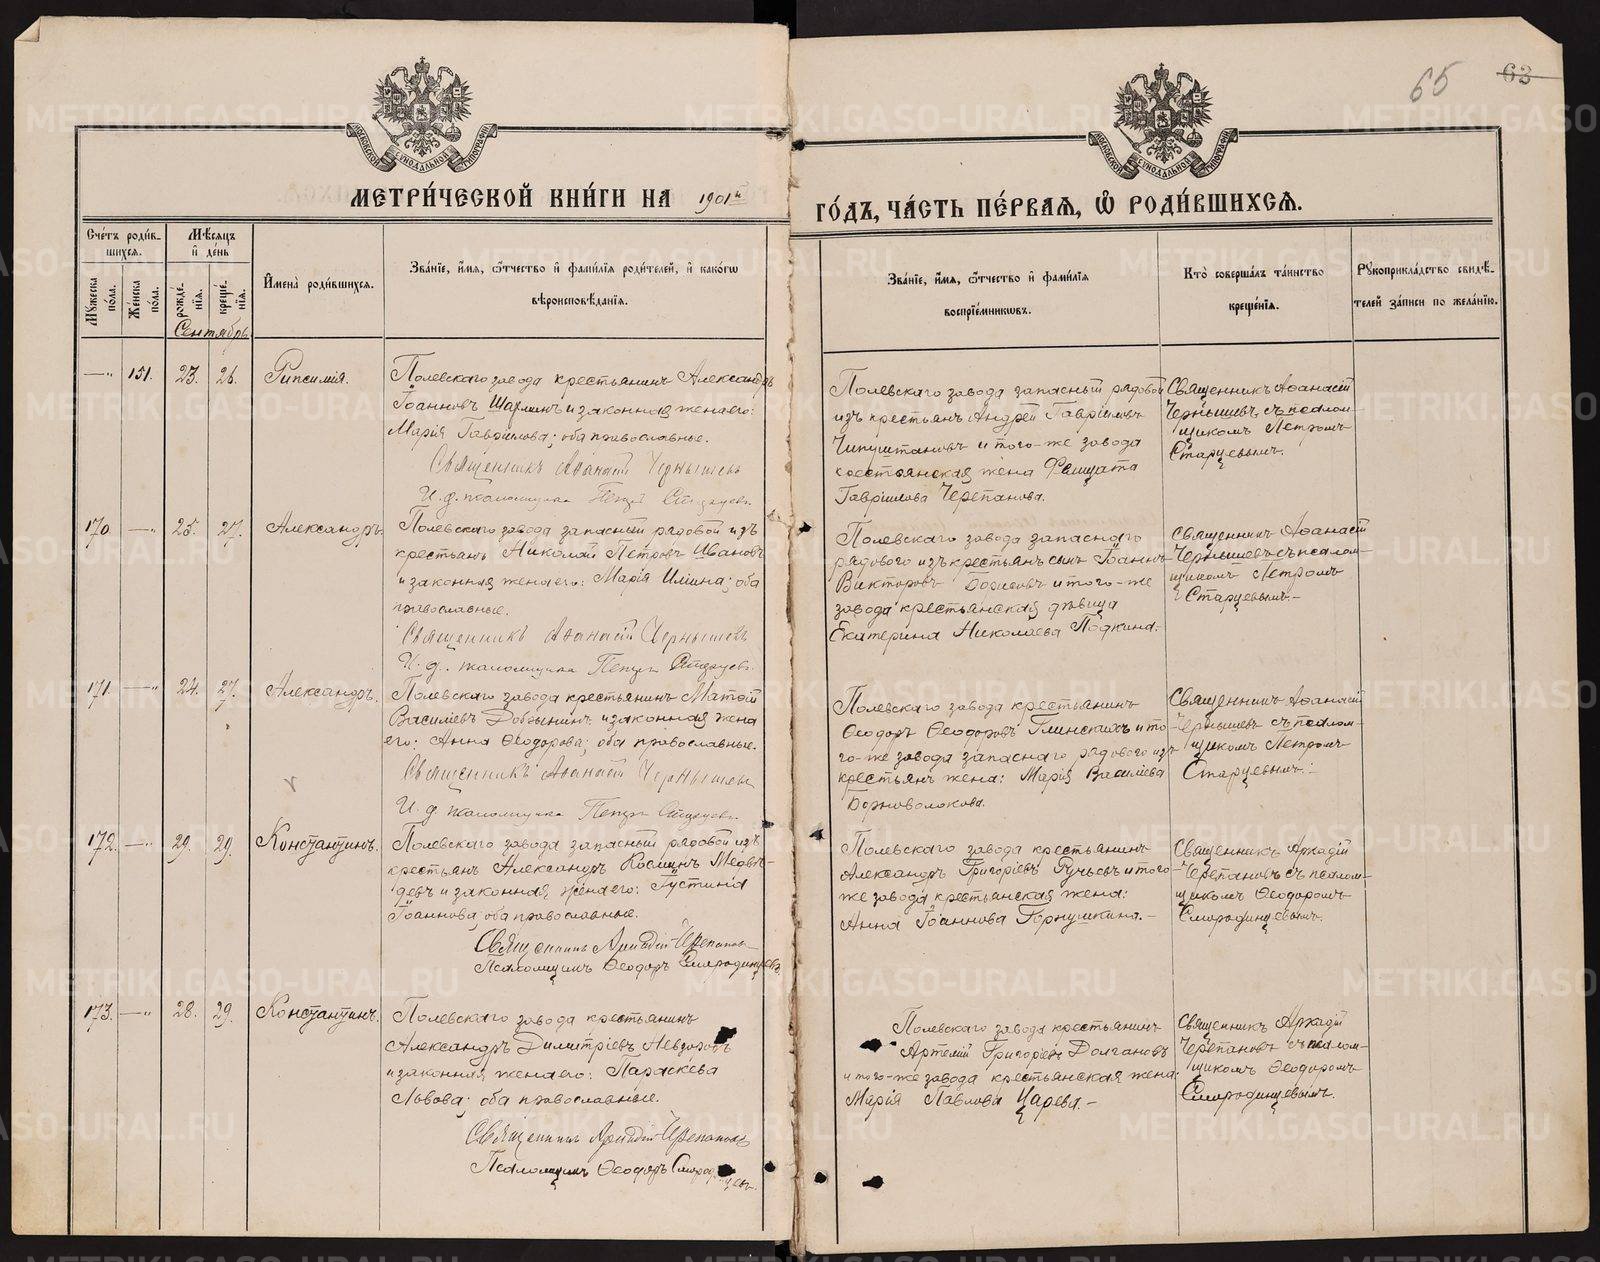 65 63
МОСКОВСКОЙ СУНОДАЛЬНОЙ ТИПОГРАФІИ
МОСКОВСКОЙ СУНОДАЛЬНОЙ ТИПОГРАФІИ
МЕТРИ́ЧЕСКОЙ КНИ́ГИ НА 1901й ГО́ДЪ, ЧА́СТЬ ПЕ́РВАѦ, Ѡ РОДИ́ВШИХСѦ.
Сче́тъ роди́в-
шихсѧ.
Мꙋжеска по́ла.
Же́нска по́ла.
Мѣ́сѧцъ
и҆ де́нь
рожде́-
нїѧ.
креще́-
нїѧ.
Сентябрь
И҆мена̀ роди́вшихсѧ.
Зва́нїе, и҆́мѧ, ѻ҆́тчество и҆ фами́лїѧ роди́телей, и҆ како́гѡ
вѣроисповѣ́данїѧ.
Зва́нїе, и҆́мѧ, ѻ҆́тчество и҆ фами́лїѧ
воспрїе́мникѡвъ.
Кто̀ соверша́лъ та́инство
креще́нїѧ.
Рꙋкоприкла́дство свидѣ́-
телей за́писи по жела́нїю.
—„ 151. 23. 26. Рипсимія.
Полевскаго завода крестьянинъ Александръ
Іоанновъ Шарминъ и законная жена его:
Марія Гавріилова; оба православные.
Священникъ Аѳанасій Чернышевъ
И. д. псаломщика Петръ Старцевъ.
Полевскаго завода запасный рядовой
изъ крестьянъ Андрей Гавріиловъ
Чипуштановъ и того-же завода
крестьянская жена
Гавріилова Черепанова.
Священникъ Аѳанасій
Чернышевъ съ псалом-
щикомъ Петромъ
Старцевымъ.
170. —„ 25. 27. Александръ.
Полевскаго завода запасный рядовой изъ
крестьянъ Николай Петровъ Ивановъ
и законная жена его: Марія Иліина; оба
православные.
Священникъ Аѳанасій Чернышевъ
И. д. псаломщика Петръ Старцевъ.
Полевскаго завода запаснаго
рядового изъ крестьянъ сынъ Іоаннъ
Викторовъ Борисовъ и того-же
завода крестьянская дѣвица
Екатерина Николаева Подкина.
Священникъ Аѳанасій
Чернышевъ съ псалом-
щикомъ Петромъ
Старцевымъ.-
171. —„ 24. 27. Александръ.
Полевскаго завода крестьянинъ Матѳій
Василіевъ Добрынинъ и законная жена
его: Анна Ѳеодорова; оба православные.
Священникъ Аѳанасій Чернышевъ
И. д. псаломщика Петръ Старцевъ.
Полевскаго завода крестьянинъ
Ѳеодоръ Ѳеодоровъ Глинскихъ и то-
го-же завода запаснаго рядового изъ
крестьянъ жена: Марія Василіева
Борноволокова.
Священникъ Аѳанасій
Чернышевъ съ псалом-
щикомъ Петромъ
Старцевымъ.-
172. —„ 29. 29. Константинъ.
Полевскаго завода запасный рядовой изъ
крестьянъ Александръ Косминъ Медвѣ-
девъ и законная жена его: Іустина
Іоаннова; оба православные.
Священникъ Аркадій Черепановъ
Псаломщикъ Ѳеодоръ Смородинцевъ.
Полевскаго завода крестьянинъ
Александръ Григоріевъ Ручьевъ и того-
же завода крестьянская жена:
Анна Іоаннова Горнушкина.-
Священникъ Аркадій
Черепановъ съ псалом-
щикомъ Ѳеодоромъ
Смородинцевымъ.
173. —„ 28. 29. Константинъ.
Полевскаго завода крестьянинъ
Александръ Димитріевъ Невзоровъ
и законная жена его: Параскева
Львова; оба православные.
Священникъ Аркадій Черепановъ
Псаломщикъ Ѳеодоръ Смородинцевъ.
Полевскаго завода крестьянинъ
Артемій Григоріевъ Долгановъ
и того-же завода крестьянская жена:
Марія Павлова Царева.-
Священникъ Аркадій
Черепановъ съ псалом-
щикомъ Ѳеодоромъ
Смородинцевымъ.
METRIKI.GASO-URAL.RU